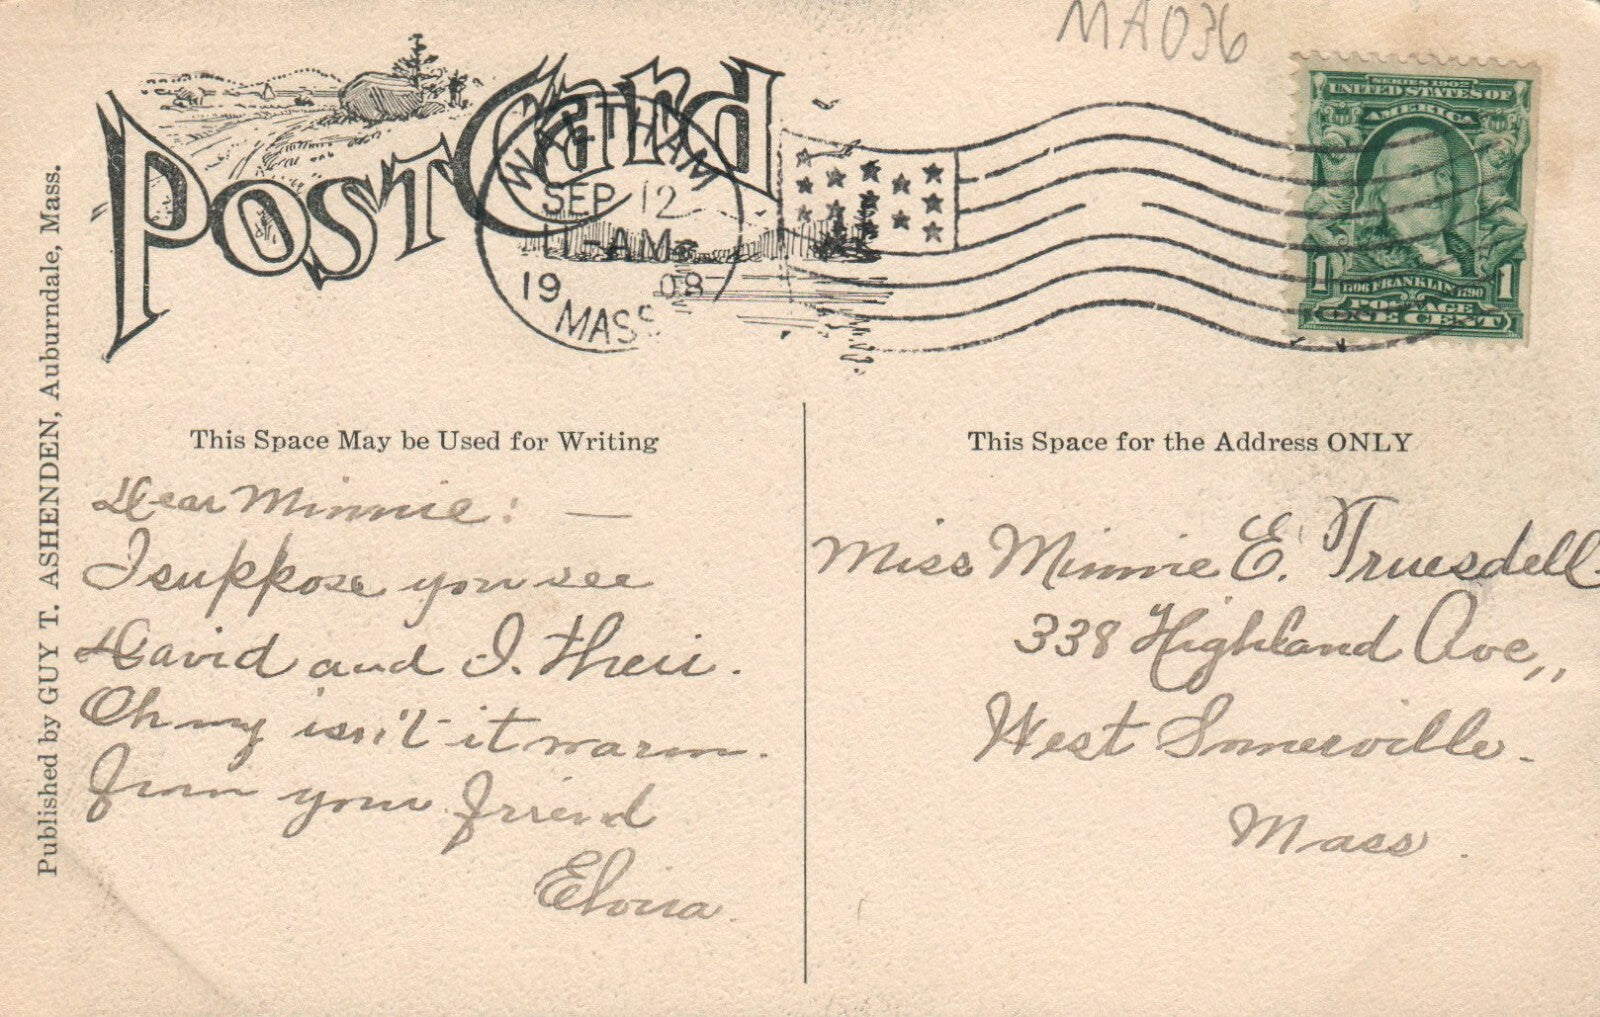 MA036
POST CARD
WALTHAM
SEP 12
11-AM
19 08
MASS
SERIES 1902
UNITED STATES OF
AMERICA
1 1
1706 FRANKLIN 1790
POSTAGE
ONE CENT
Published by GUY T. ASHENDEN, Auburndale, Mass.
This Space May be Used for Writing
Dear Minnie: —
I suppose you see
David and I. Their.
Oh my isn't it warm.
From your friend
Elvira.
This Space for the Address ONLY
Miss Minnie E. Truesdell.
338 Highland Ave,,
West Somerville.
Mass.